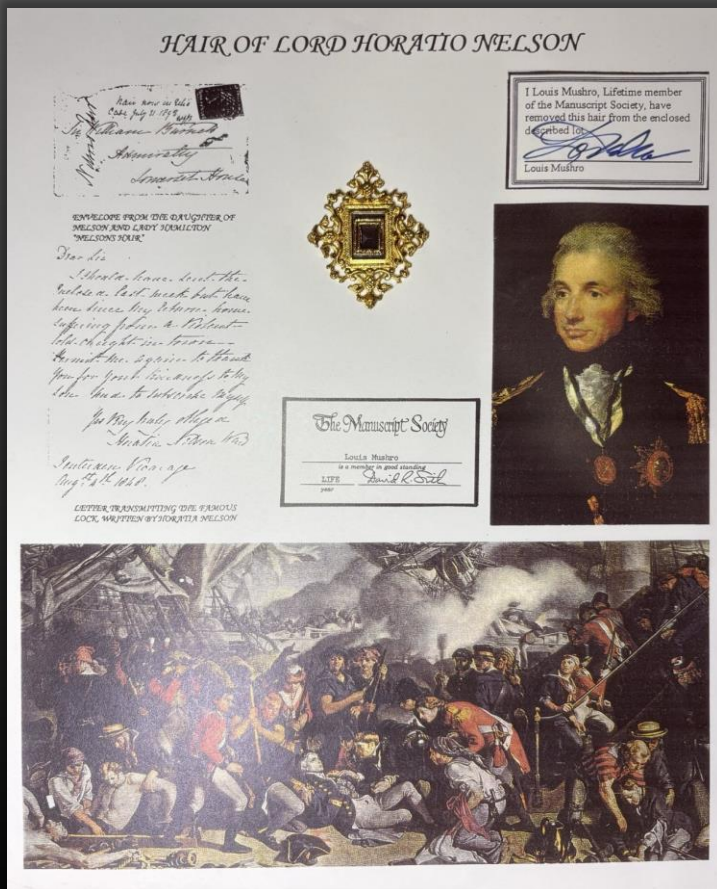 HAIR OF LORD HORATIO NELSON
Hair now in this
Case July 31 1898
Sir William Burnett
Admiralty
Somerset House
ENVELOPE FROM THE DAUGHTER OF
NELSON AND LADY HAMILTON
"NELSONS HAIR"
Dear Sir
I should have sent the
enclosed last week but have
been since my return home
suffering from a Violent
cold caught in town
Permit me again to thank
you for your kindness to my
son and to subscribe myself
Yrs Very truly obliged
Horatia Nelson Ward
Tenterden Vicarage
Augst 4th 1848.
LETTER TRANSMITTING THE FAMOUS
LOCK, WRITTEN BY HORATIA NELSON
I Louis Mushro, Lifetime member
of the Manuscript Society, have
removed this hair from the enclosed
described lot.
Louis Mushro
The Manuscript Society
Louis Mushro
is a member in good standing
LIFE
year